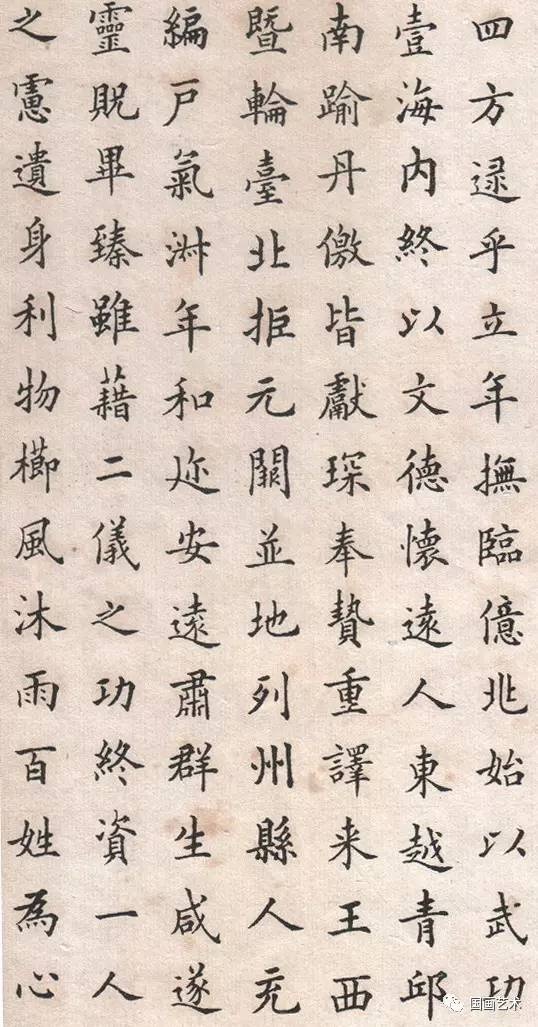 四方逯乎立年撫臨億兆始以武功
壹海内終以文德懷遠人東越青邱
南踰丹儌皆獻琛奉贄重譯来王西
暨輪臺北拒元闕並地列州縣人充
編戸氣淋年和迩安遠肅群生咸遂
靈貺畢臻雖藉二儀之功終資一人
之慮遺身利物櫛風沐雨百姓為心
国画艺术